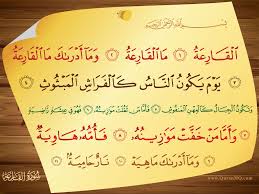 بسم الله الرحمن الرحيم
ٱلْقَارِعَةُ ١ مَا ٱلْقَارِعَةُ ٢ وَمَآ أَدْرَىٰكَ مَا ٱلْقَارِعَةُ ٣
يَوْمَ يَكُونُ ٱلنَّاسُ كَٱلْفَرَاشِ ٱلْمَبْثُوثِ ٤
وَتَكُونُ ٱلْجِبَالُ كَٱلْعِهْنِ ٱلْمَنفُوشِ ٥ فَأَمَّا مَن ثَقُلَتْ مَوَٰزِينُهُۥ ٦ فَهُوَ فِى عِيشَةٍ رَّاضِيَةٍ ٧
وَأَمَّا مَنْ خَفَّتْ مَوَٰزِينُهُۥ ٨ فَأُمُّهُۥ هَاوِيَةٌ ٩
وَمَآ أَدْرَىٰكَ مَا هِيَهْ ١٠ نَارٌ حَامِيَةٌۢ ١١
سورة القارعة